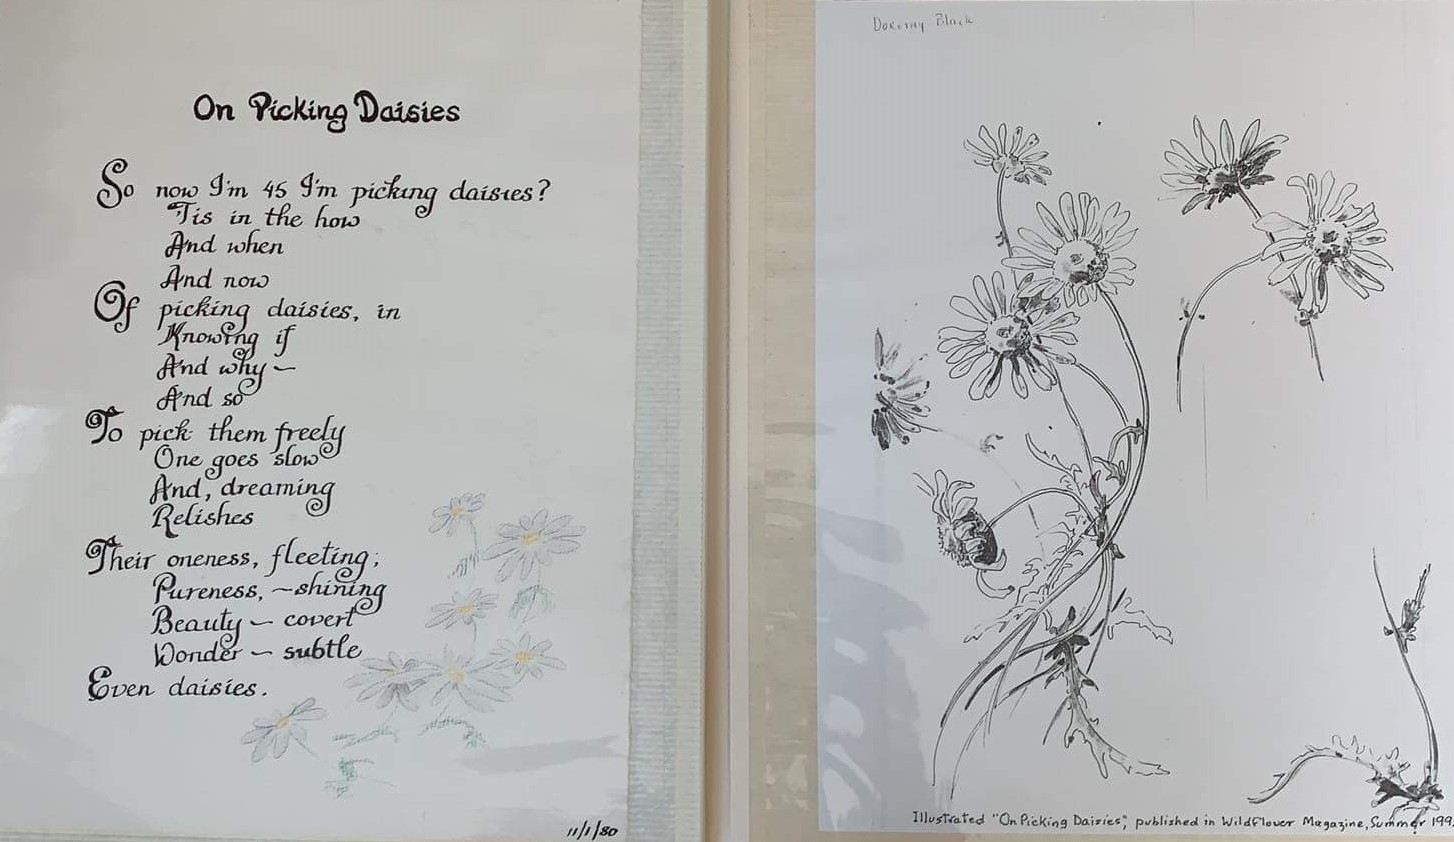 On Picking Daisies
So now I'm 45 I'm picking daisies?
'Tis in the how
And when
And now
Of picking daisies, in
Knowing if
And why –
And so
To pick them freely
One goes slow
And, dreaming
Relishes
Their oneness, fleeting;
Pureness, – shining
Beauty – covert
Wonder – subtle
Even daisies.
11/1/80
Dorothy Black
Illustrated "On Picking Daisies", published in Wildflower Magazine, Summer